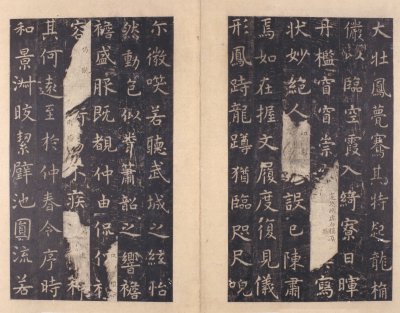 大壯鳳甍騫其特起龍桷
儼以臨空霞入綺寮日暉
丹檻窅窅崇寫
狀妙絕人設已陳肅
焉如在握文履度復見儀
形鳳跱龍蹲猶臨咫尺
尔微咲若聽武城之絃怡
然動色似簫韶之響襜
襜盛服既覩仲由侃
容不疾神
其何遠至於仲春令序時
和景淑皎絜璧池圓流若